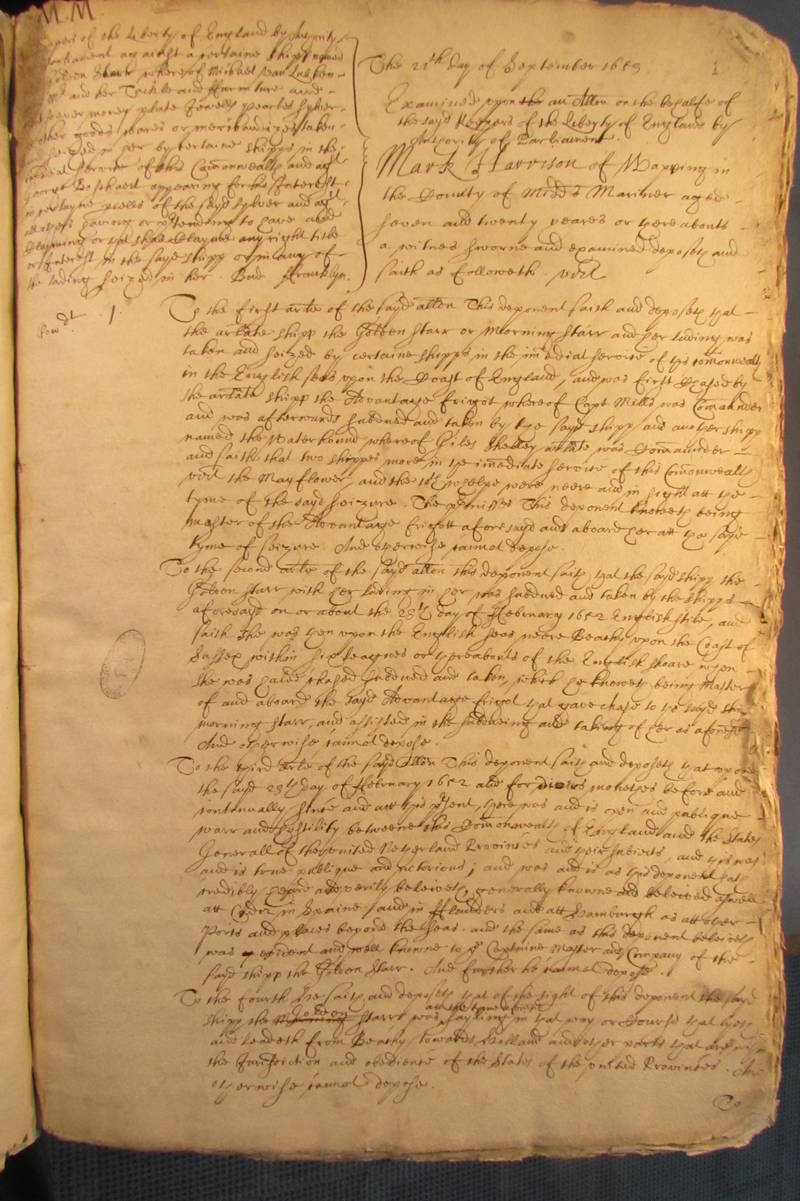 M.M.
of the Liberty of England by Authority
Parliament against a certaine shipp named
Golden Starr whereof Michael van Lubken
and her Tackle and furniture and
money plate Jewells pearles
other goods wares or merchandizes taken
seized in her by certaine shipps in the
service of this Comonwealth and agt
appearing for his Interest
in certayne peeces of the sayd sylver and agt
all others having or pretending to have and
Claymeing or that shall Clayme any right title
or Interest in the sayd shipp or in any of
the lading seized in her. Bud Francklyn.
The 21th day of September 1653
1
Examined upon an Allon on the behalfe of
the sayd Keepers of the Liberty of England by
Authority of Parliament.
Mark Harrison of Wapping in
the County of Middx Mariner aged
seven and twenty yeares or thereabouts
a witnes sworne and examined deposeth and
saith as followeth vizt
1.
To the first arle of the sayd allon This deponent saith and deposeth that
the arlate shipp the Golden Starr or Morning Starr and her lading was
taken and seized by certaine shipps in the imediat service of this comonwealth
in the English seas upon the Coast of England, and was first chased by
the arlate shipp the Advantage frigot whereof Capt Mills was Comander
and was afterwards subdued and taken by the sayd shipp and another shipp
named the Waterhound whereof Giles Shelley arlate was Comaunder
and saith that two shipps more in the imediate service of this Comonwealth
vizt the Mayflower, and the 10th whelpe were neere and in sight att the
tyme of the sayd seizure. The premisses This deponent knoweth being
master of the Advantage frigott aforesayd and aboard her att the sayd
tyme of seizure. And otherwise cannot depose.
To the second arle of the sayd allon this deponent saith that the sayd shipp the
Golden Starr with her lading in her was subdued and taken by the shipps
aforesayd on or about the 28th day of February 1652 English stile, and
saith she was then upon the English seas neere Beachy upon the Coast of
Sussex within six leagues or thereabouts of the English shoare when
she was chased subdued and taken, which he knoweth being Master
of and aboard the sayd Advantage frigot that gave chase to the sayd shipp
morning starr, and assisted in the subdueing and taking of her as aforesd
And otherwise cannot depose.
To the third arle of the sayd allon This deponent saith and deposeth that upon
the sayd 28th day of February 1652 and for divers monethes before and
continually since and att this present, there was and is open and publique
warr and hostility betweene this Comonwealth of England and the States
Generall of the united Netherland Provinces and their subiects, and this was
and is true publique and notorious; and was and is as this deponent hath
credibly heard and verily beleiveth, generally knowne and beleived aswell
att Cadiz in Spaine and in Flanders and att Hamburgh as att other
Ports and places beyond the seas. and the same as this deponent beleiveth
was evident and well knowne to ye Captaine Master and Company of the
sayd shipp the Golden Starr. And further he cannot depose.
To the fourth hee saith and deposeth that of the sight of this deponent the sayd
shipp the Golden Starr was att the tyme sayling in that way or Course that lyeth
and leadeth from Beachy towards Holland and other parts that are within
the Jurisdiction and obedience of the States of the united Provinces. And
otherwise cannot depose.
To